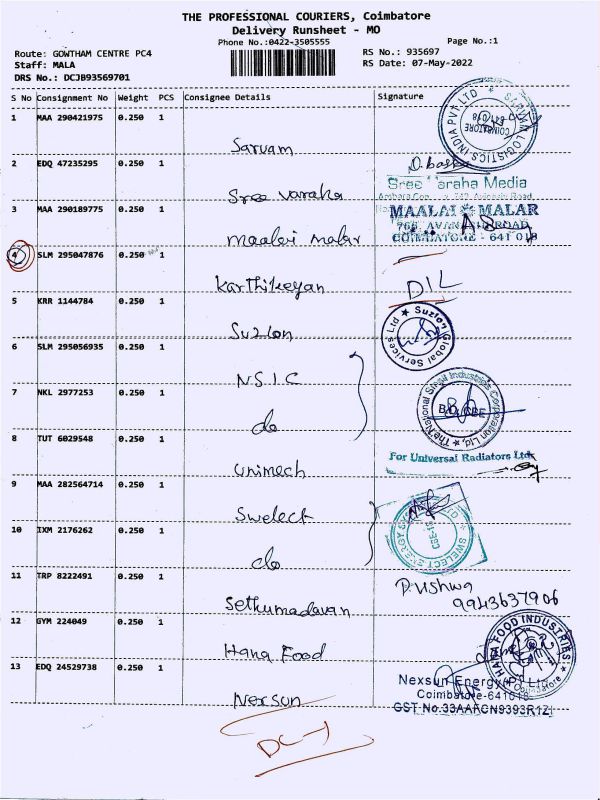 THE PROFESSIONAL COURIERS, Coimbatore
Delivery Runsheet - MO
Phone No.:0422-3505555
Page No.:1
Route: GOWTHAM CENTRE PC4
RS No.: 935697
Staff: MALA
RS Date: 07-May-2022
DRS No.: DCJB93569701
S No Consignment No Weight PCS Consignee Details Signature
1 MAA 290421975 0.250 1
Sarvam
SARVAM LOGISTICS INDIA PVT LTD
COIMBATORE
641 018
2 EDQ 47235295 0.250 1
Sree Varaha
Sree Varaha Media
3 MAA 290189775 0.250 1
maalai malar
MAALAI MALAR
COIMBATORE - 641 018
4 SLM 295047876 0.250 1
Karthikeyan
DIL
5 KRR 1144784 0.250 1
Suzlon
Suzlon Global Services Ltd
6 SLM 295056935 0.250 1
N.S.I.C
7 NKL 2977253 0.250 1
do
The National Small Industries Corporation Ltd.
8 TUT 6029548 0.250 1
Unimech
For Universal Radiators Ltd.
9 MAA 282564714 0.250 1
Swelect
10 IXM 2176262 0.250 1
do
11 TRP 8222491 0.250 1
Sethumadavan
9943637906
12 GYM 224049 0.250 1
Hang Food
FOOD INDUSTRIES
Coimbatore
13 EDQ 24529738 0.250 1
Nexsun
Nexsun Energy (P) Ltd
Coimbatore-641018
GST No.33AAACN9393R1Z
DC-1